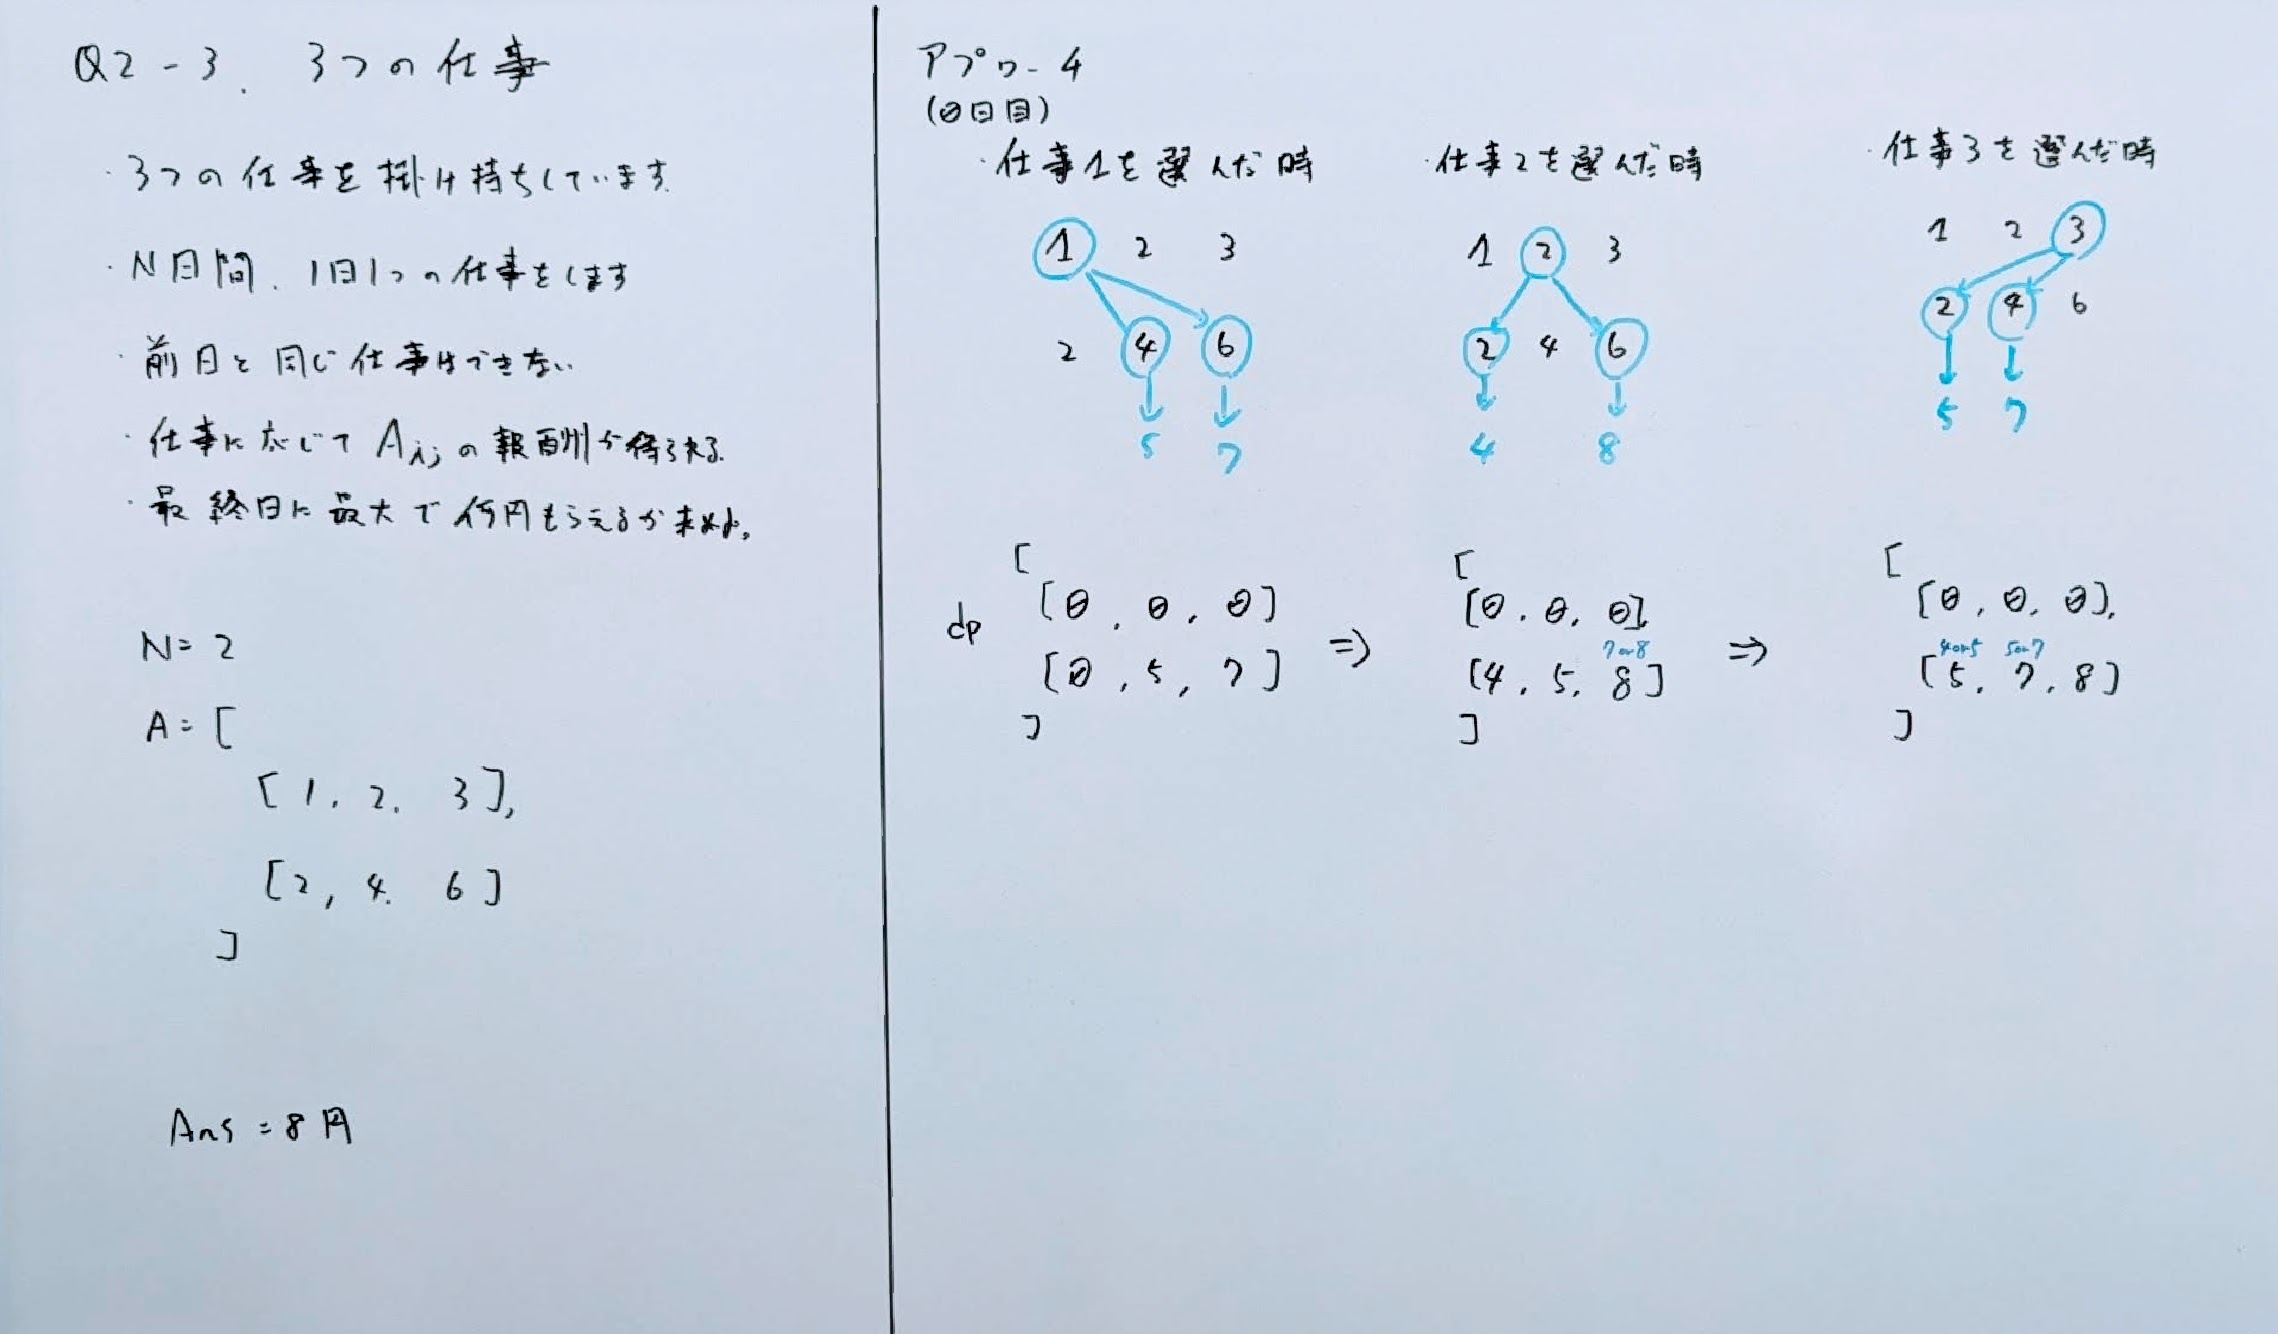 Q2-3. 3つの仕事
・3つの仕事を掛け持ちしています
・N日間、1日1つの仕事をします
・前日と同じ仕事はできない
・仕事に応じてAijの報酬が得られる
・最終日に最大で何円もらえるか求めよ。
N=2
A=[
[1, 2, 3],
[2, 4, 6]
]
Ans=8円
アプローチ
(0日目)
・仕事1を選んだ時
1 2 3
2 4 6
5 7
・仕事2を選んだ時
1 2 3
2 4 6
4 8
・仕事3を選んだ時
1 2 3
2 4 6
5 7
dp
[
[0, 0, 0]
[0, 5, 7]
]
⇒
[
[0, 0, 0],
7or8
[4, 5, 8]
]
⇒
[
[0, 0, 0],
4or5 5or7
[5, 7, 8]
]